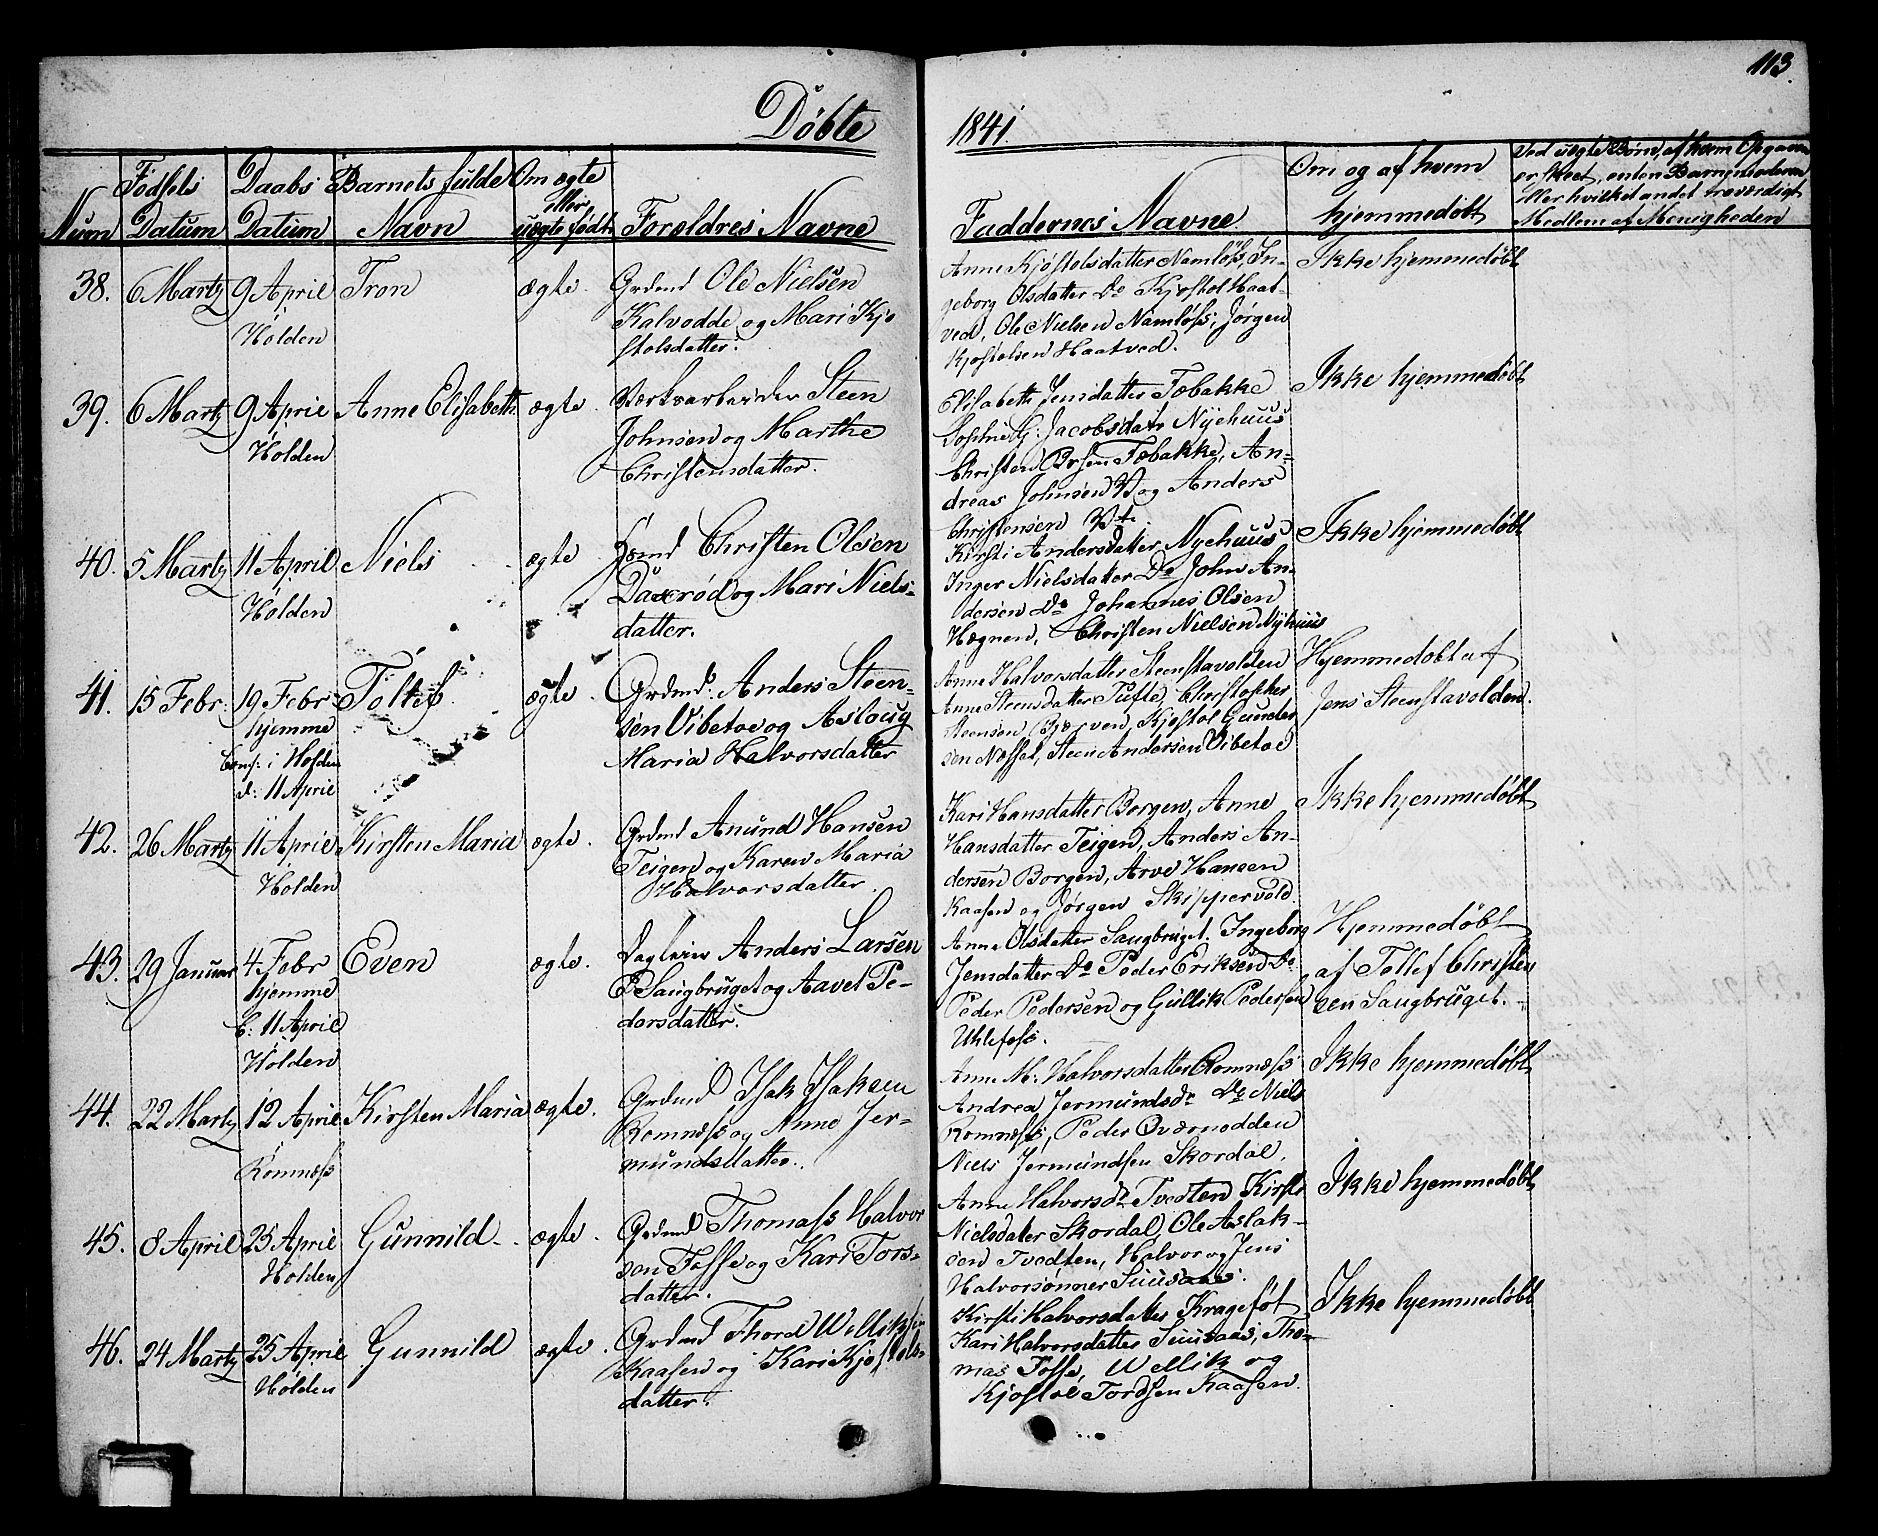 113.
Døbte 1841.
Num
Fødsels Datum
Daabs Datum
Barnets fulde Navn
Om ægte eller uægte født.
Forældres Navne
Faddernes Navne
Om og af hvem hjemmedøbt
Ved uægte Børn, af hvem Opgaven
er skeet, enten Barnemoderen
eller hvilket andet troværdigt
Medlem af Menigheden
38. 6 Martz 9 April Holden Tron ægte.
Grdmd Ole Nielsen
Kalvodde og Mari Kjø
stolsdatter.
Anne Kjøstolsdatter Namløs, In-
geborg Olsdatter Do Kjøstol Haat-
ved, Ole Nielsen Namløss, Jørgen
Kjøstolsen Haatved.
Ikke hjemmedøbt
39. 6 Martz 9 April Holden Anne Elisabeth ægte.
Værksarbeider Steen
Johnsen og Marthe
Christensdatter.
Elisabeth Jensdatter Tobakke
Sophie G. Jacobsdatr Nyehuus
Christen Tobakke, An-
dreas Johnsen og Anders
Christensen
Ikke hjemmedøbt
40. 5 Martz 11 April Holden Niels ægte
Christen Olsen
Daxrød og Mari Niels-
datter.
Kirsti Andersdatter Nyehuus
Inger Nielsdatter Do John An-
dersen Do Johannes Olsen
Hægnen, Christen Nielsen Nyhuus
Ikke hjemmedøbt
41. 15 Febr. 19 Febr hjemme
Conf: i Holden
d: 11 April
Tollef ægte.
Grdmd: Anders Steen-
sen Vibetoe og Asloug
Maria Halvorsdatter
Anne Halvorsdatter Steenstavolden
Anne Steensdatter Tufte, Christopher
Steensen Bjerven, Kjøstol Gunder
sen Næsset, Steen Andersen Vibetoe
Hjemmedøbt af
Jens Steenstavolden.
42. 26 Martz 11 April Holden Kirsten Maria ægte.
Grdmd Anund Hansen
Teigen og Karen Maria
Halvorsdatter.
Kari Hansdatter Borgen, Anne
Hansdatter Teigen, Anders An-
dersen Borgen, Arve Hansen
Kaasen og Jørgen Skippervold.
Ikke hjemmedøbt
43. 29 Januar 4 Febr hjemme
C. 11 April
Holden
Even ægte.
Anders Larsen
Saugbruget og Aavet Pe-
dersdatter.
Anne Olsdatter Saugbruget. Ingeborg
Jensdatter Do Peder Eriksen Do
Peder Pedersen og Gullik Pedersen
Uhlefoss.
Hjemmedøbt
af Tollef Christen
sen Saugbruget.
44. 22 Martz 12 April Romnæss Kirsten Maria ægte.
Grdmd Isak Isaksen
Romnæss og Anne Jer-
mundsdatter.
Anne M. Halvorsdatter Romnæss
Andrea Jermundsdr Do Niels
Romnæss, Peder Qværnodden
Niels Jermundsen Skordal.
Ikke hjemmedøbt
45. 8 April 25 April Holden Gunnild ægte.
Grdmd Thomass Halvor
sen Fosse og Kari Tors-
datter.
Anne Halvorsdr Tvedten Kirsti
Nielsdatter Skordal, Ole Aslak-
sen Tvedten, Halvor og Jens
Halvorsønner Suusaas.
Ikke hjemmedøbt
46. 24 Martz 25 April Holden Gunnild ægte.
Grdmd Thord Williksen
Kaasen og Kari Kjøstols-
datter.
Kirsti Halvorsdatter Kragefot
Kari Halvorsdatter Suusaas, Tho-
mas Fosse, Wellik og
Kjøstol Tordsen Kaasen.
Ikke hjemmedøbt